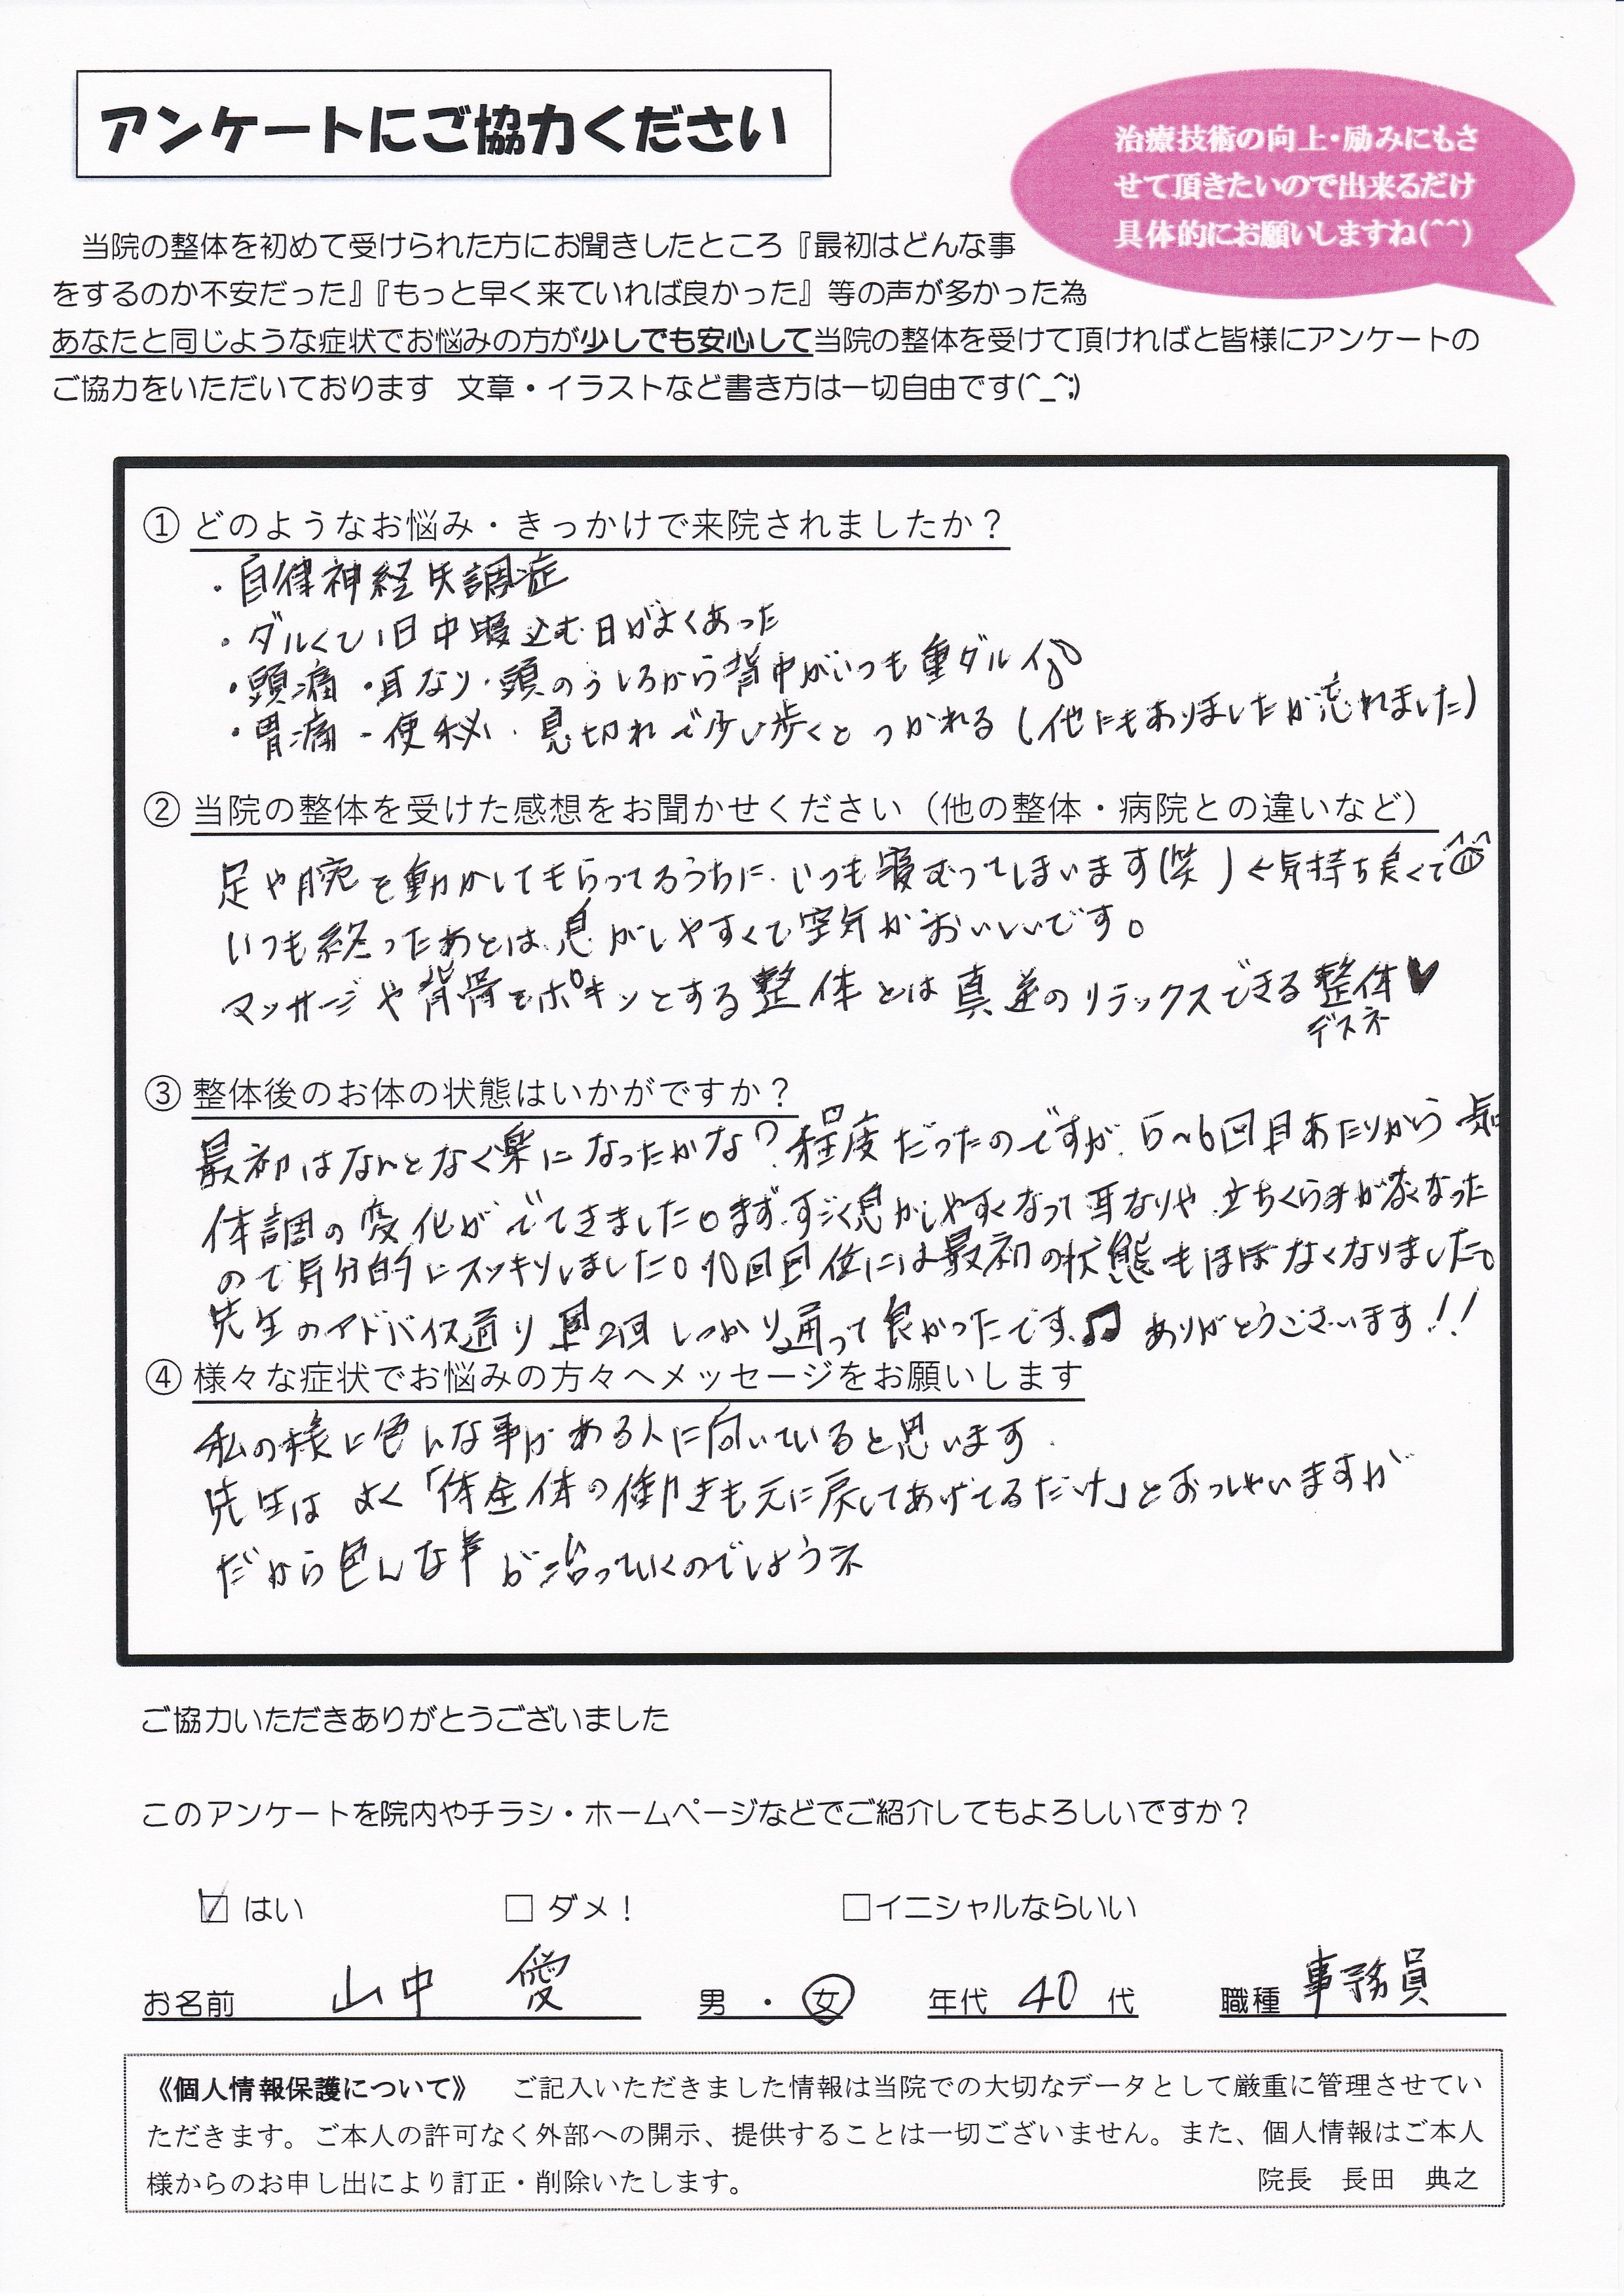 アンケートにご協力ください
治療技術の向上・励みにもさ
せて頂きたいので出来るだけ
具体的にお願いしますね(^^)
当院の整体を初めて受けられた方にお聞きしたところ『最初はどんな事
をするのか不安だった』『もっと早く来ていれば良かった』等の声が多かった為
あなたと同じような症状でお悩みの方が少しでも安心して当院の整体を受けて頂ければと皆様にアンケートの
ご協力をいただいております 文章・イラストなど書き方は一切自由です(^_^;)
① どのようなお悩み・きっかけで来院されましたか？
・自律神経失調症
・ダルくて1日中寝込む日がよくあった
・頭痛・耳なり・頭のうしろから背中がいつも重ダルイ
・胃痛・便秘・息切れで少し歩くとつかれる（他にもありましたが忘れました）
② 当院の整体を受けた感想をお聞かせください（他の整体・病院との違いなど）
足や腕を動かしてもらってるうちに、いつも寝むってしまいます(笑)←気持ち良くて
いつも終ったあとは、息がしやすくて空気がおいしいです。
マッサージや背骨をポキンとする整体とは真逆のリラックスできる整体♥
デスネ
③ 整体後のお体の状態はいかがですか？
最初はなんとなく楽になったかな？程度だったのですが、5～6回目あたりから
体調の変化がでてきました。まず、すごく息がしやすくなって耳なりや、立ちくらみがなくなった
ので気分的にスッキリしました。10回目位には最初の状態もほぼなくなりました。
先生のアドバイス通り週2回しっかり通って良かったです♫ ありがとうございます!!
④ 様々な症状でお悩みの方々へメッセージをお願いします
私の様に色んな事がある人に向いていると思います.
先生はよく「体全体の働きも元に戻してあげてるだけ」とおっしゃいますが
だから色んな事が治っていくのでしょうネ
ご協力いただきありがとうございました
このアンケートを院内やチラシ・ホームページなどでご紹介してもよろしいですか？
☑ はい □ ダメ！ □イニシャルならいい
お名前 山中 愛 男 ・ 女 年代 40 代 職種 事務員
《個人情報保護について》 ご記入いただきました情報は当院での大切なデータとして厳重に管理させてい
ただきます。ご本人の許可なく外部への開示、提供することは一切ございません。また、個人情報はご本人
様からのお申し出により訂正・削除いたします。 院長 長田 典之